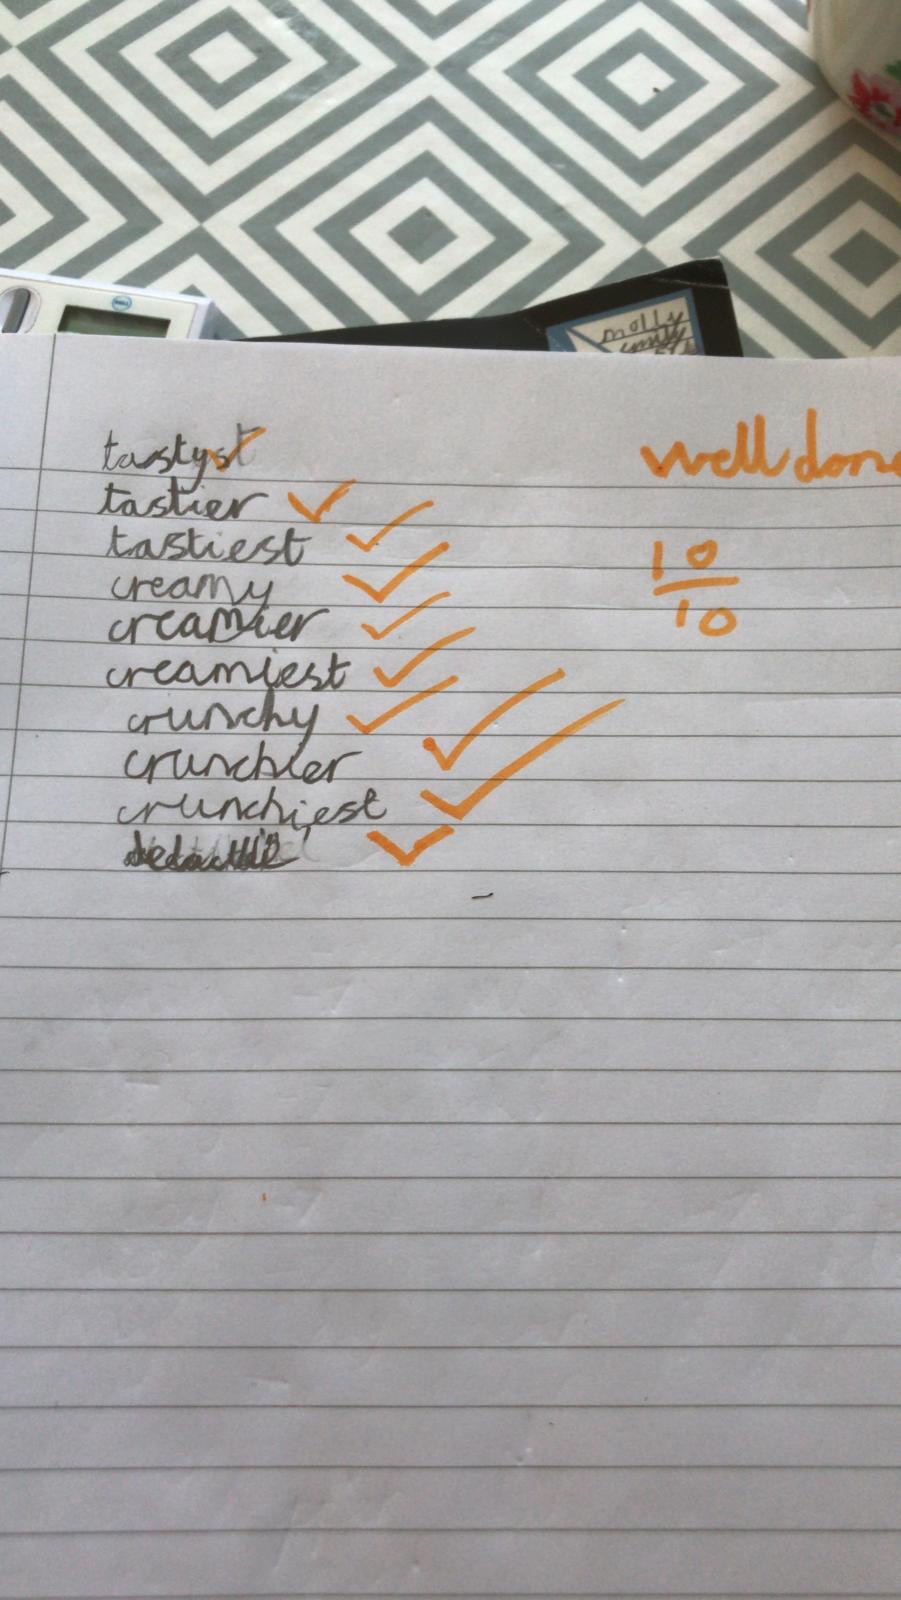 molly
emily
tastyst
well done
tastier
tastiest
10
creamy
10
creamier
creamiest
crunchy
crunchier
crunchiest